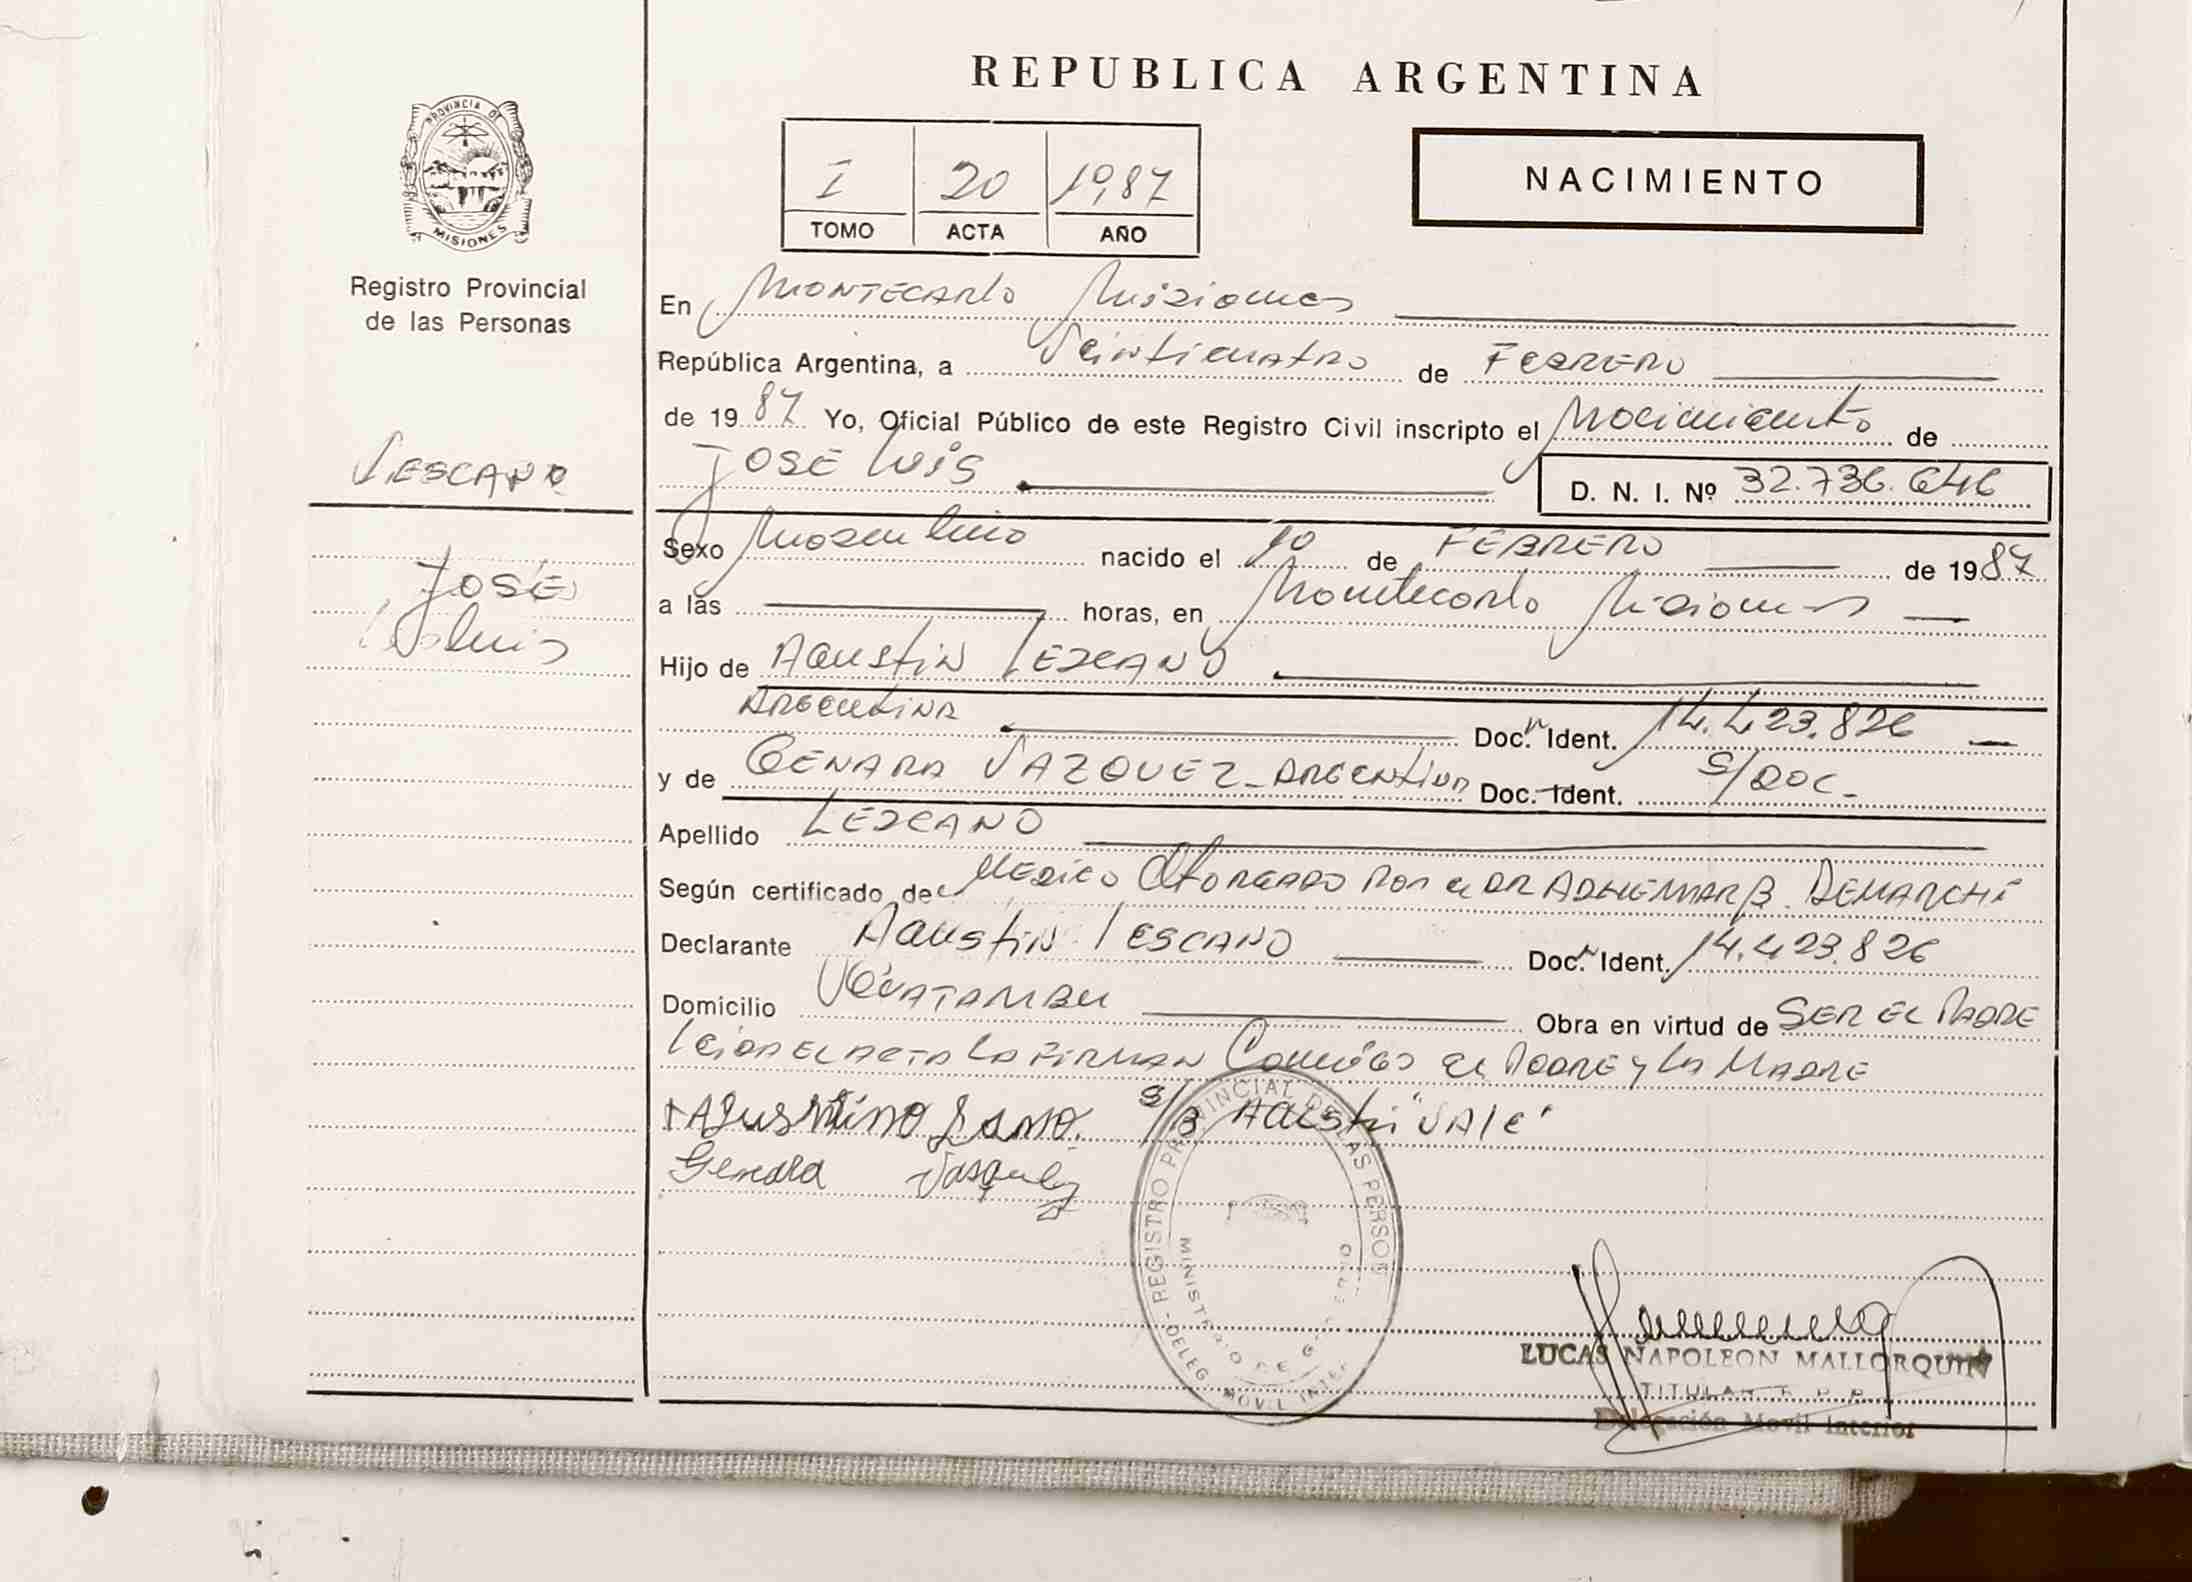 REPUBLICA ARGENTINA
PROVINCIA DE
MISIONES
Registro Provincial
de las Personas
I 20 1987
TOMO ACTA AÑO
NACIMIENTO
En Montecarlo Misiones
República Argentina, a Veinticuatro de Febrero
de 1987 Yo, Oficial Público de este Registro Civil inscripto el Nacimiento de
Lescano
José Luis
D. N. I. Nº 32.736.646
José
Luis
Sexo Masculino nacido el 10 de FEBRERO de 1987
a las horas, en Montecarlo Misiones
Hijo de Agustin Lezcano
Argentina Doc. Ident. 14.423.826
y de Genara Vazquez - Argentina Doc. Ident. S/Doc-
Apellido LEZCANO
Según certificado de Medico Otorgado por el DR ADHEMAR B. DEMARCHI
Declarante Agustin Lescano Doc. Ident. 14.423.826
Domicilio Guatambu Obra en virtud de SER EL PADRE
Leida el acta la firman Conmigo el Padre y la Madre
S/B Agusti "Vale"
Genara Vasquez
REGISTRO PROVINCIAL DE LAS PERSON
MINISTERIO DE GOBIERNO
DELEG. MOVIL INTER
LUCAS NAPOLEON MALLORQUIN
TITULAR R. P. P.
Delegación Movil Interior